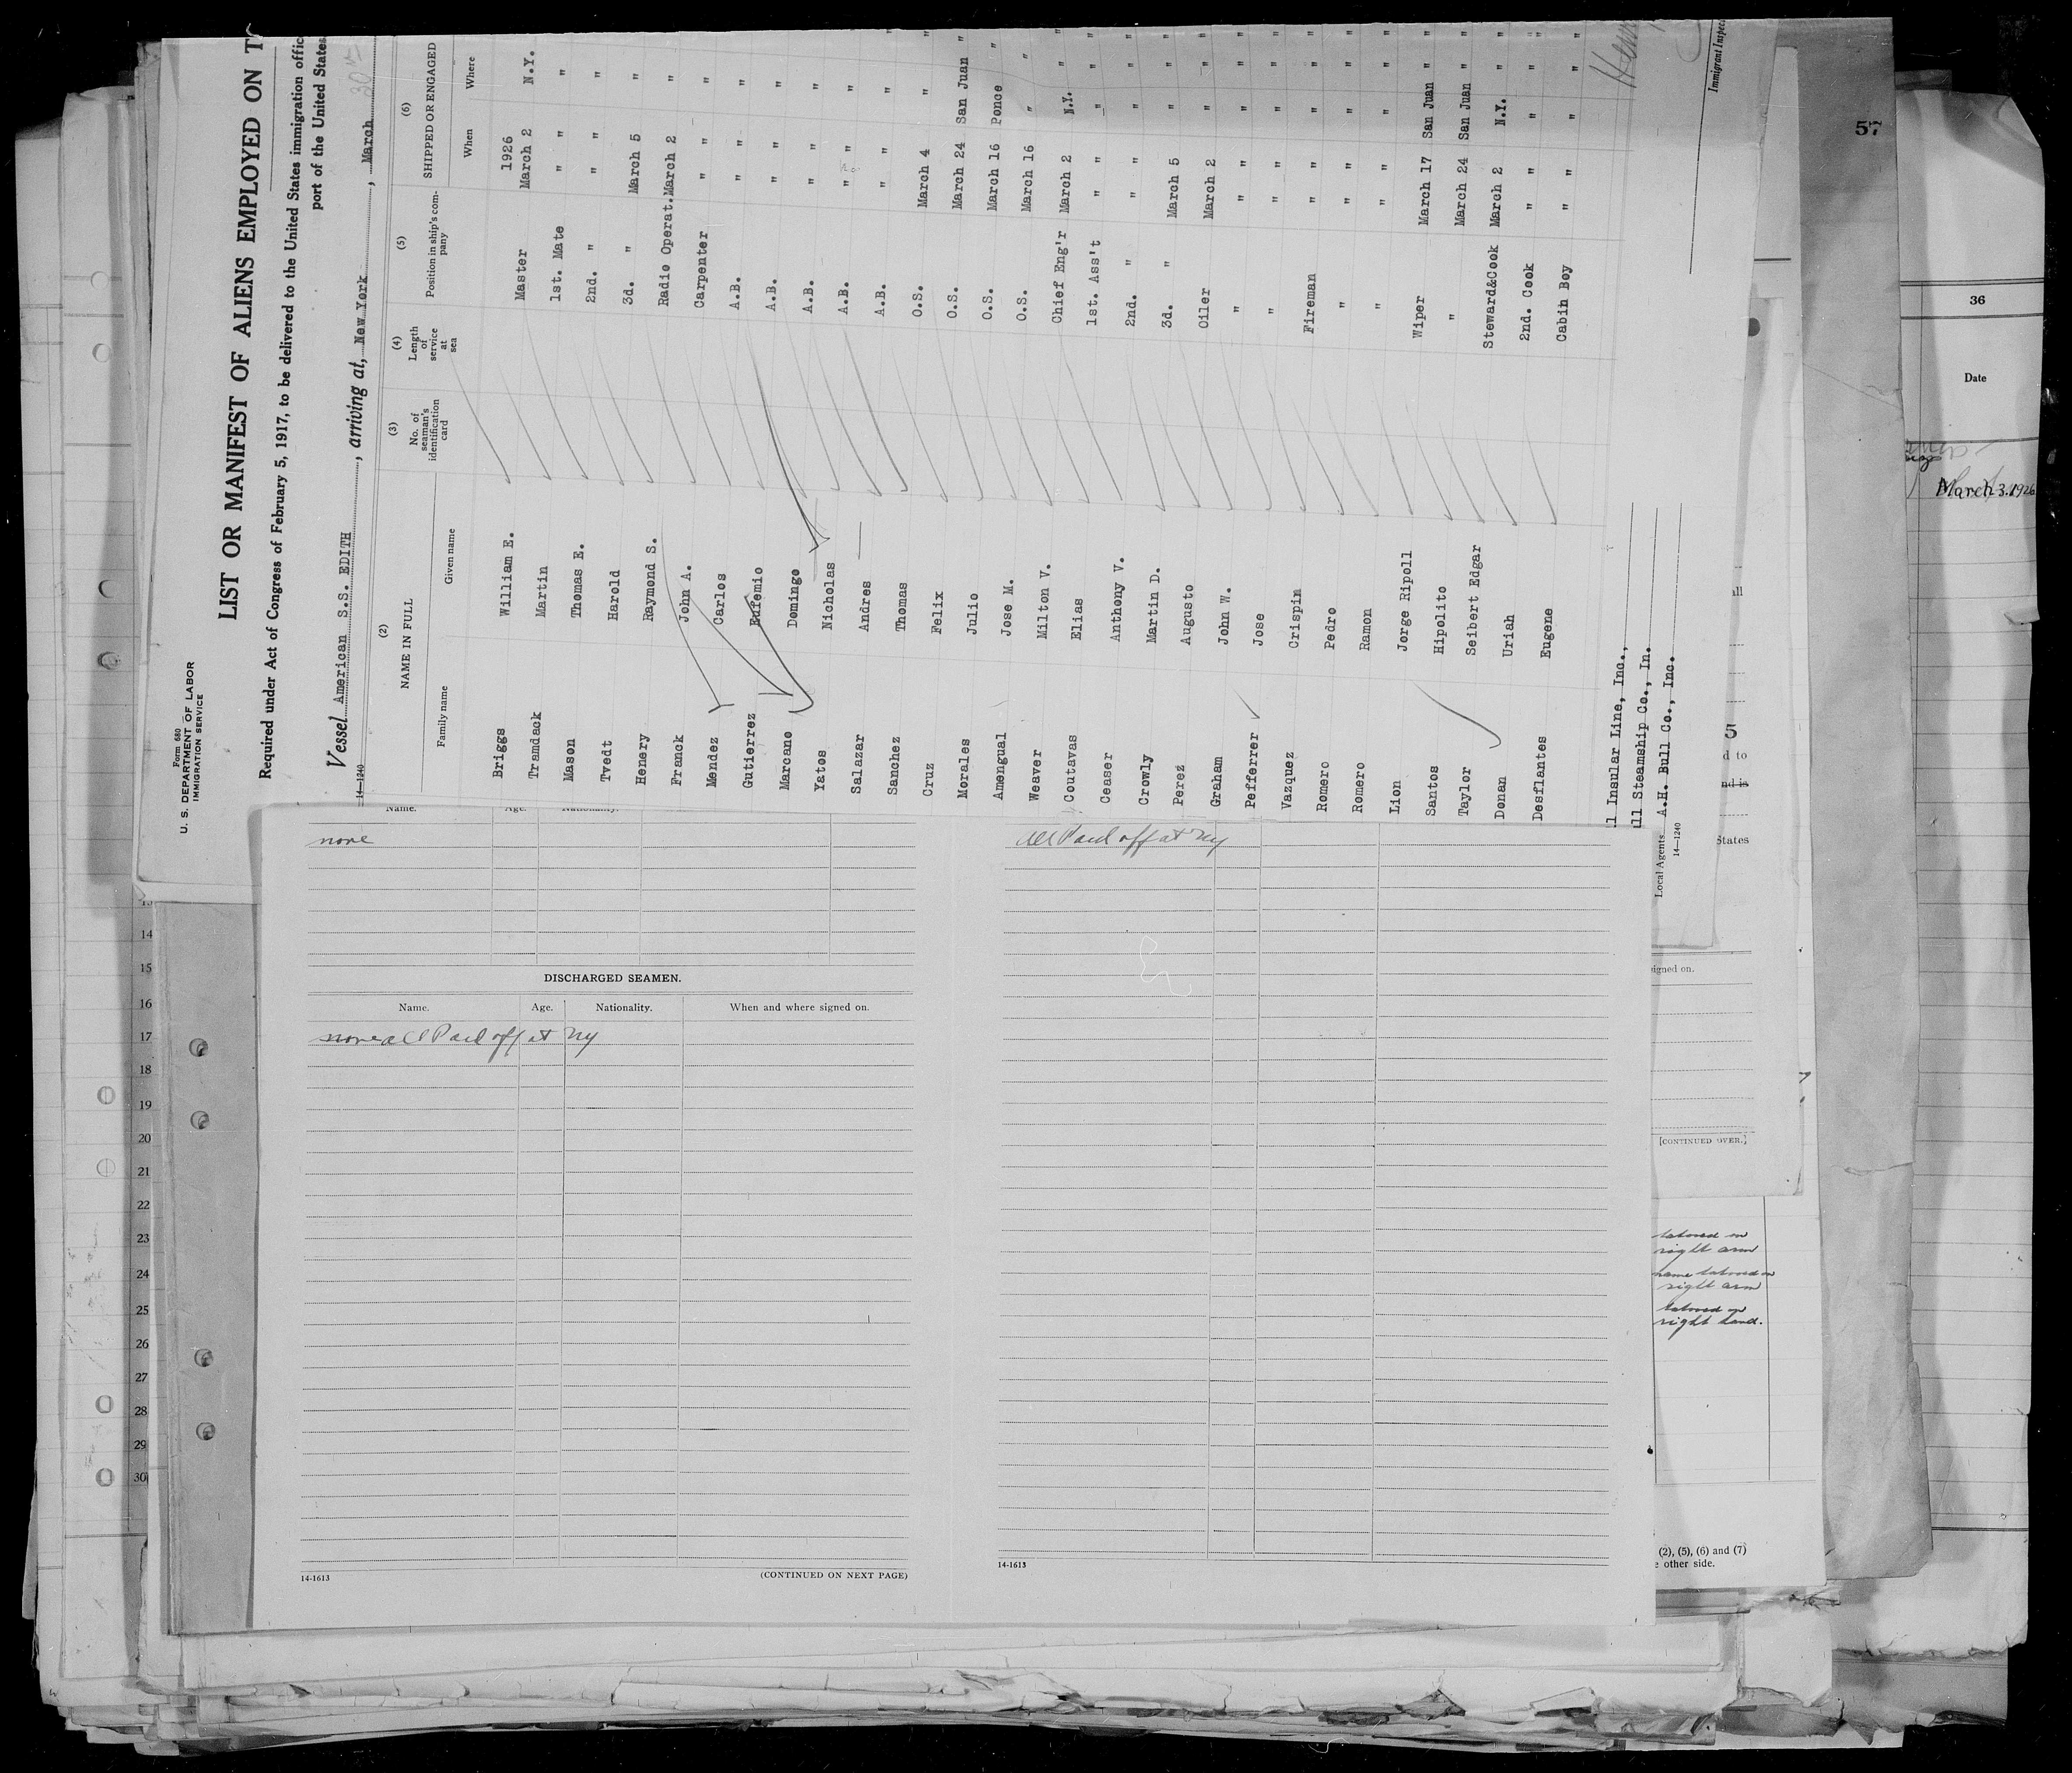 Form 680
U. S. DEPARTMENT OF LABOR
IMMIGRATION SERVICE
LIST OR MANIFEST OF ALIENS EMPLOYED ON T
Required under Act of Congress of February 5, 1917, to be delivered to the United States immigration offic
port of the United States
Vessel American S.S. EDITH, arriving at, New York, March 30th
14—1240
(2) (3) (4) (5) (6)
NAME IN FULL No. of seaman's identification card Length of service at sea Position in ship's company SHIPPED OR ENGAGED
Family name Given name When Where
1926
Briggs William E. Master March 2 N.Y.
Tramdack Martin 1st. Mate " " "
Mason Thomas E. 2nd. " " " "
Tvedt Harold 3d. " March 5 "
Henery Raymond S. Radio Operat. March 2 "
Franck John A. Carpenter " " "
Mendez Carlos A.B. " " "
Gutierrez Eufemio A.B. " " "
Marcano Domingo A.B. " " "
Yates Nicholas A.B. " " "
Salazar Andres A.B. " " "
Sanchez Thomas O.S. March 4 "
Cruz Felix O.S. March 24 San Juan
Morales Julio O.S. March 16 Ponce
Amengual Jose M. O.S. March 16 "
Weaver Milton V. Chief Eng'r March 2 N.Y.
Coutavas Elias 1st. Ass't " " "
Ceaser Anthony V. 2nd. " " " "
Crowly Martin D. 3d. " March 5 "
Perez Augusto Oiler March 2 "
Graham John W. " " " "
Pefferrer Jose " " " "
Vazquez Crispin Fireman " " "
Romero Pedro " " " "
Romero Ramon " " " "
Lion Jorge Ripoll Wiper March 17 San Juan
Santos Hipolito " March 24 San Juan
Taylor Seibert Edgar Steward&Cook March 2 N.Y.
Donan Uriah 2nd. Cook " " "
Desflantes Eugene Cabin Boy " " "
ll Insular Line, Inc.,
ull Steamship Co., In.
Local Agents A.H. Bull Co., Inc.
14—1240
Immigrant Inspec
Name. Age. Nationality.
none
DISCHARGED SEAMEN.
Name. Age. Nationality. When and where signed on.
none all Paid off at NY
14-1613 (CONTINUED ON NEXT PAGE)
All Paid off at NY
14-1613
13
14
15
16
17
18
19
20
21
22
23
24
25
26
27
28
29
30
57
36
Date
March 3. 1926
all
5
d to
nd is
States
signed on.
[CONTINUED OVER.]
tatooed on
right arm
name tatooed on
right arm
tatooed on
right hand.
(2), (5), (6) and (7)
e other side.